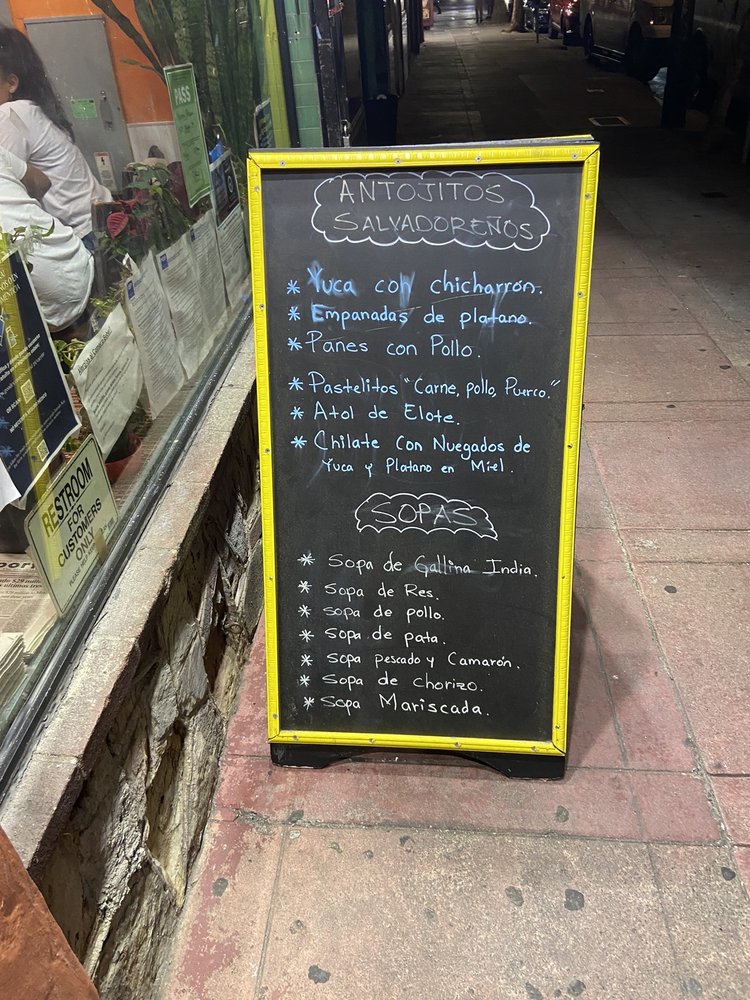 ANTOJITOS
SALVADOREÑOS
* Yuca con chicharron.
* Empanadas de platano.
* Panes con Pollo.
* Pastelitos "Carne, pollo, Puerco."
* Atol de Elote.
* Chilate Con Nuegados de
Yuca y Platano en Miel.
SOPAS
* Sopa de Gallina India.
* Sopa de Res.
* Sopa de pollo.
* Sopa de pata.
* Sopa pescado y Camarón.
* Sopa de Chorizo.
* Sopa Mariscada.
PASS
RESTROOM
FOR
CUSTOMERS
ONLY